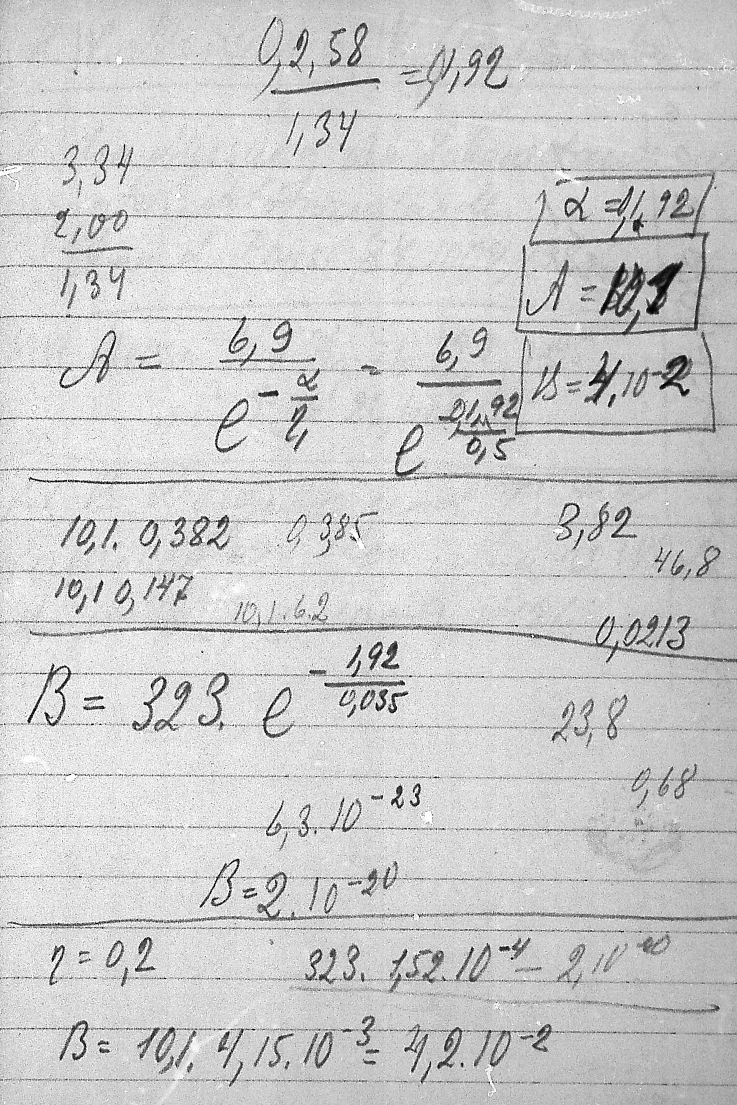 0,2,58
1,34
= 0,192
3,34
2,00
1,34
α = 0,192
A = 10,1
B = 4,10⁻²
A = 6,9 / e^(-α/η) = 6,9 / e^(0,192/0,5)
10,1. 0,382 0,385 3,82
46,8
10,1 0,147 10,1.6.2
0,0213
B = 323. e^(-1,92/0,035)
23,8
0,68
6,3.10⁻²³
B = 2.10⁻²⁰
η = 0,2 323. 1,52.10⁻⁴ – 2,10⁻²⁰
B = 10,1. 4,15.10⁻³ = 4,2.10⁻²